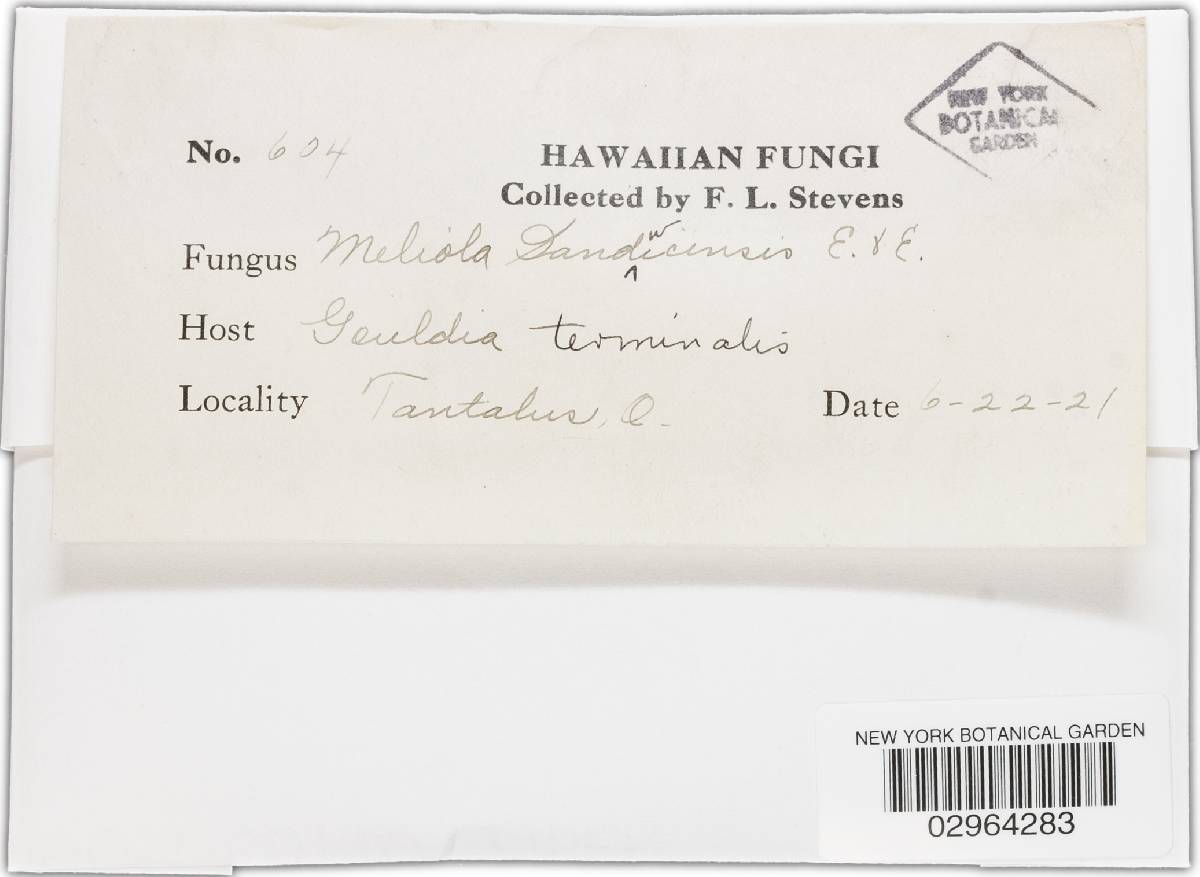 NEW YORK
BOTANICAL
GARDEN
No. 604
HAWAIIAN FUNGI
Collected by F. L. Stevens
Fungus Meliola Sandwicensis E. & E.
Host Gouldia terminalis
Locality Tantalus, O.
Date 6-22-21
NEW YORK BOTANICAL GARDEN
02964283